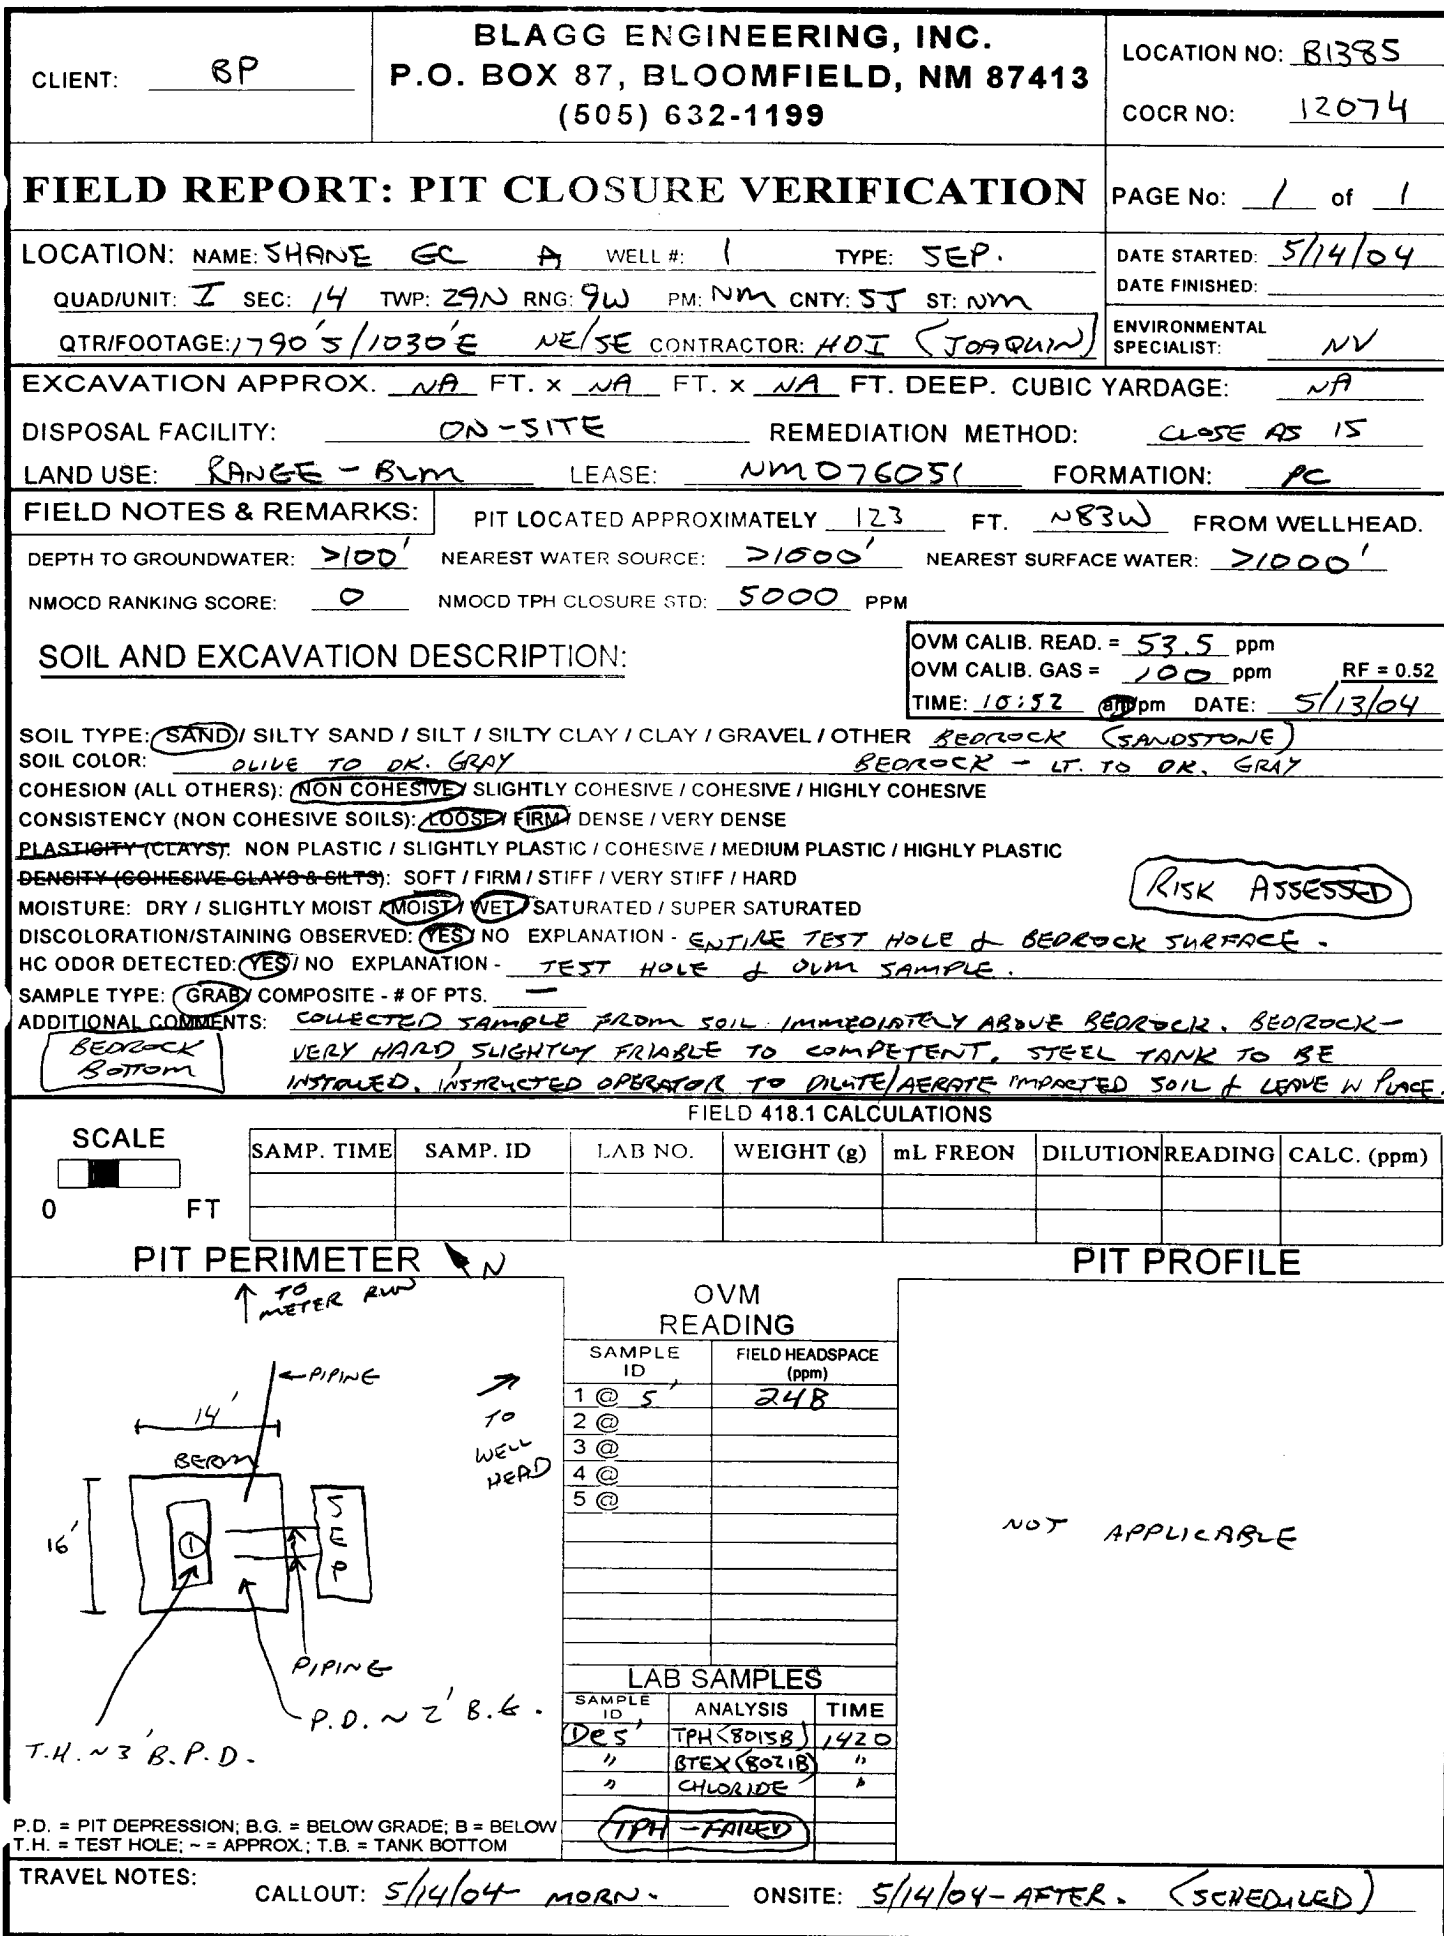 BLAGG ENGINEERING, INC.
CLIENT: BP
P.O. BOX 87, BLOOMFIELD, NM 87413
(505) 632-1199
LOCATION NO: B1385
COCR NO: 12074
FIELD REPORT: PIT CLOSURE VERIFICATION
PAGE No: 1 of 1
LOCATION: NAME: SHANE GC A WELL #: 1 TYPE: SEP.
QUAD/UNIT: I SEC: 14 TWP: 29N RNG: 9W PM: NM CNTY: SJ ST: NM
QTR/FOOTAGE: 1790'S/1030'E NE/SE CONTRACTOR: HDI (JOAQUIN)
DATE STARTED: 5/14/04
DATE FINISHED:
ENVIRONMENTAL
SPECIALIST: NV
EXCAVATION APPROX. NA FT. x NA FT. x NA FT. DEEP. CUBIC YARDAGE: NA
DISPOSAL FACILITY: ON-SITE REMEDIATION METHOD: CLOSE AS IS
LAND USE: RANGE - BLM LEASE: NM076051 FORMATION: PC
FIELD NOTES & REMARKS: PIT LOCATED APPROXIMATELY 123 FT. N83W FROM WELLHEAD.
DEPTH TO GROUNDWATER: >100' NEAREST WATER SOURCE: >1000' NEAREST SURFACE WATER: >1000'
NMOCD RANKING SCORE: 0 NMOCD TPH CLOSURE STD: 5000 PPM
SOIL AND EXCAVATION DESCRIPTION:
OVM CALIB. READ. = 53.5 ppm
OVM CALIB. GAS = 100 ppm RF = 0.52
TIME: 10:52 am/pm DATE: 5/13/04
SOIL TYPE: SAND / SILTY SAND / SILT / SILTY CLAY / CLAY / GRAVEL / OTHER BEDROCK (SANDSTONE)
SOIL COLOR: OLIVE TO DK. GRAY BEDROCK - LT. TO DK. GRAY
COHESION (ALL OTHERS): NON COHESIVE / SLIGHTLY COHESIVE / COHESIVE / HIGHLY COHESIVE
CONSISTENCY (NON COHESIVE SOILS): LOOSE / FIRM / DENSE / VERY DENSE
PLASTICITY (CLAYS): NON PLASTIC / SLIGHTLY PLASTIC / COHESIVE / MEDIUM PLASTIC / HIGHLY PLASTIC
DENSITY (COHESIVE CLAYS & SILTS): SOFT / FIRM / STIFF / VERY STIFF / HARD
RISK ASSESSED
MOISTURE: DRY / SLIGHTLY MOIST / MOIST / WET / SATURATED / SUPER SATURATED
DISCOLORATION/STAINING OBSERVED: YES / NO EXPLANATION - ENTIRE TEST HOLE & BEDROCK SURFACE.
HC ODOR DETECTED: YES / NO EXPLANATION - TEST HOLE & OVM SAMPLE.
SAMPLE TYPE: GRAB / COMPOSITE - # OF PTS. —
ADDITIONAL COMMENTS: COLLECTED SAMPLE FROM SOIL IMMEDIATELY ABOVE BEDROCK. BEDROCK -
VERY HARD, SLIGHTLY FRIABLE TO COMPETENT. STEEL TANK TO BE
INSTALLED. INSTRUCTED OPERATOR TO DILUTE/AERATE IMPACTED SOIL & LEAVE IN PLACE.
BEDROCK
BOTTOM
FIELD 418.1 CALCULATIONS
SCALE
0 FT
SAMP. TIME SAMP. ID LAB NO. WEIGHT (g) mL FREON DILUTION READING CALC. (ppm)
PIT PERIMETER N
TO
METER RUN
PIPING
14'
BERM
16'
1
SEP
TO
WELL
HEAD
PIPING
P.D. ~ 2' B.G.
T.H. ~ 3' B.P.D.
P.D. = PIT DEPRESSION; B.G. = BELOW GRADE; B = BELOW
T.H. = TEST HOLE; ~ = APPROX.; T.B. = TANK BOTTOM
OVM
READING
SAMPLE ID FIELD HEADSPACE (ppm)
1 @ 5' 248
2 @
3 @
4 @
5 @
LAB SAMPLES
SAMPLE ID ANALYSIS TIME
1@5' TPH (8015B) 1420
" BTEX (8021B) "
" CHLORIDE "
TPH - FAILED
PIT PROFILE
NOT APPLICABLE
TRAVEL NOTES: CALLOUT: 5/14/04 - MORN. ONSITE: 5/14/04 - AFTER. (SCHEDULED)